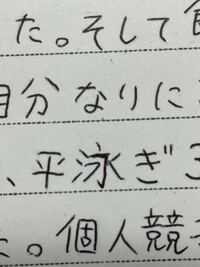 た。そして
自分なりに
、平泳ぎ3
た。個人競